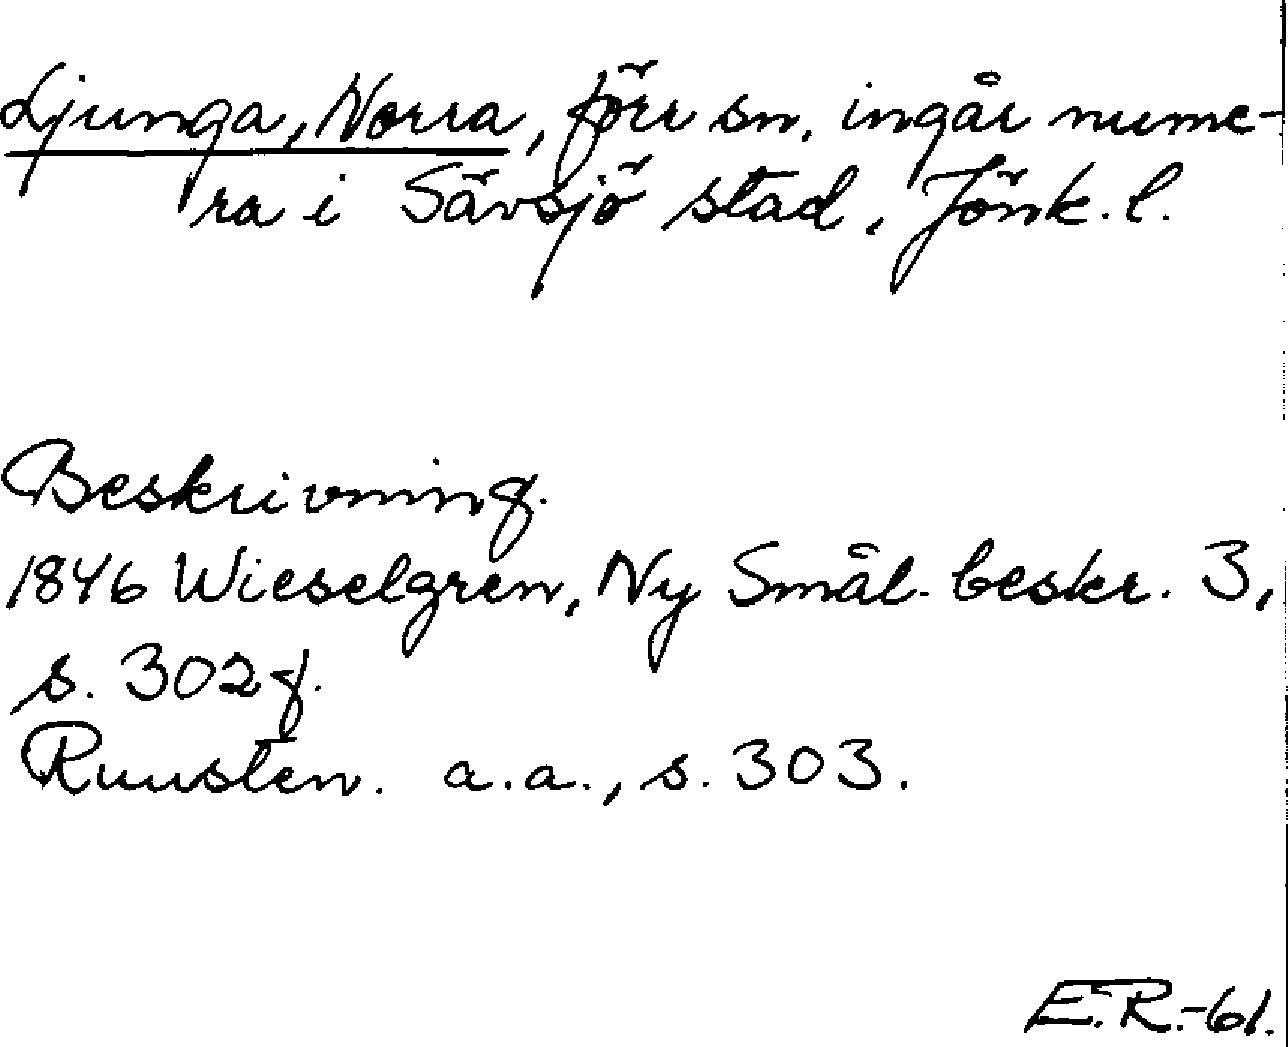 Ljunga, Norra, förr sn, ingår nume-
ra i Sävsjö stad, Jönk. l.
Beskrivning.
1846 Wieselgren, Ny Smål. beskr. 3,
s. 302 f.
Ruusten. a.a., s. 303.
E.R.-61.